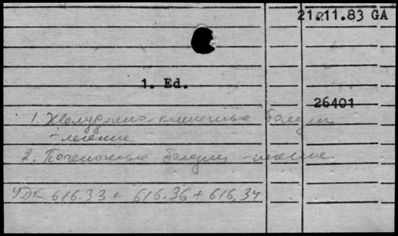 21.11.83 GA
1. Ed.
26401
1. Желудочно-кишечные болезни
- лечение
2. Печеночные болезни - лечение
УДК 616.33 + 616.36 + 616.34